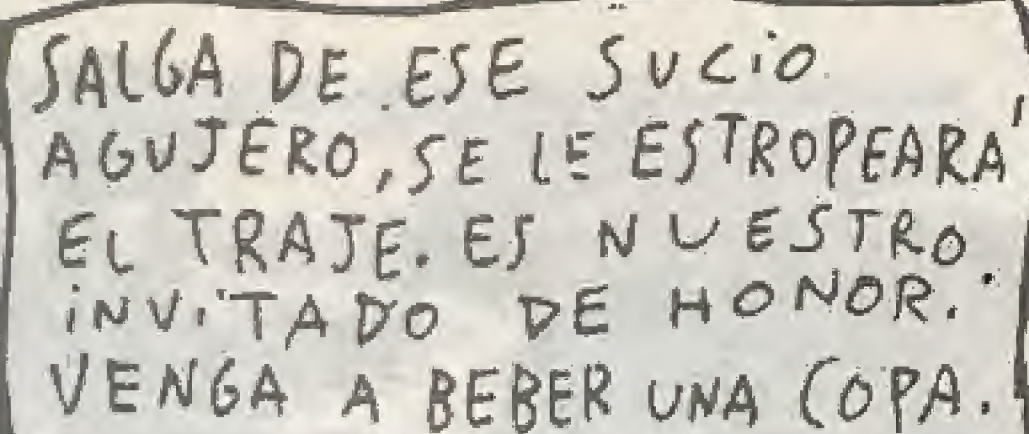 SALGA DE ESE SUCIO
AGUJERO, SE LE ESTROPEARÁ
EL TRAJE. ES NUESTRO
INVITADO DE HONOR.
VENGA A BEBER UNA COPA.